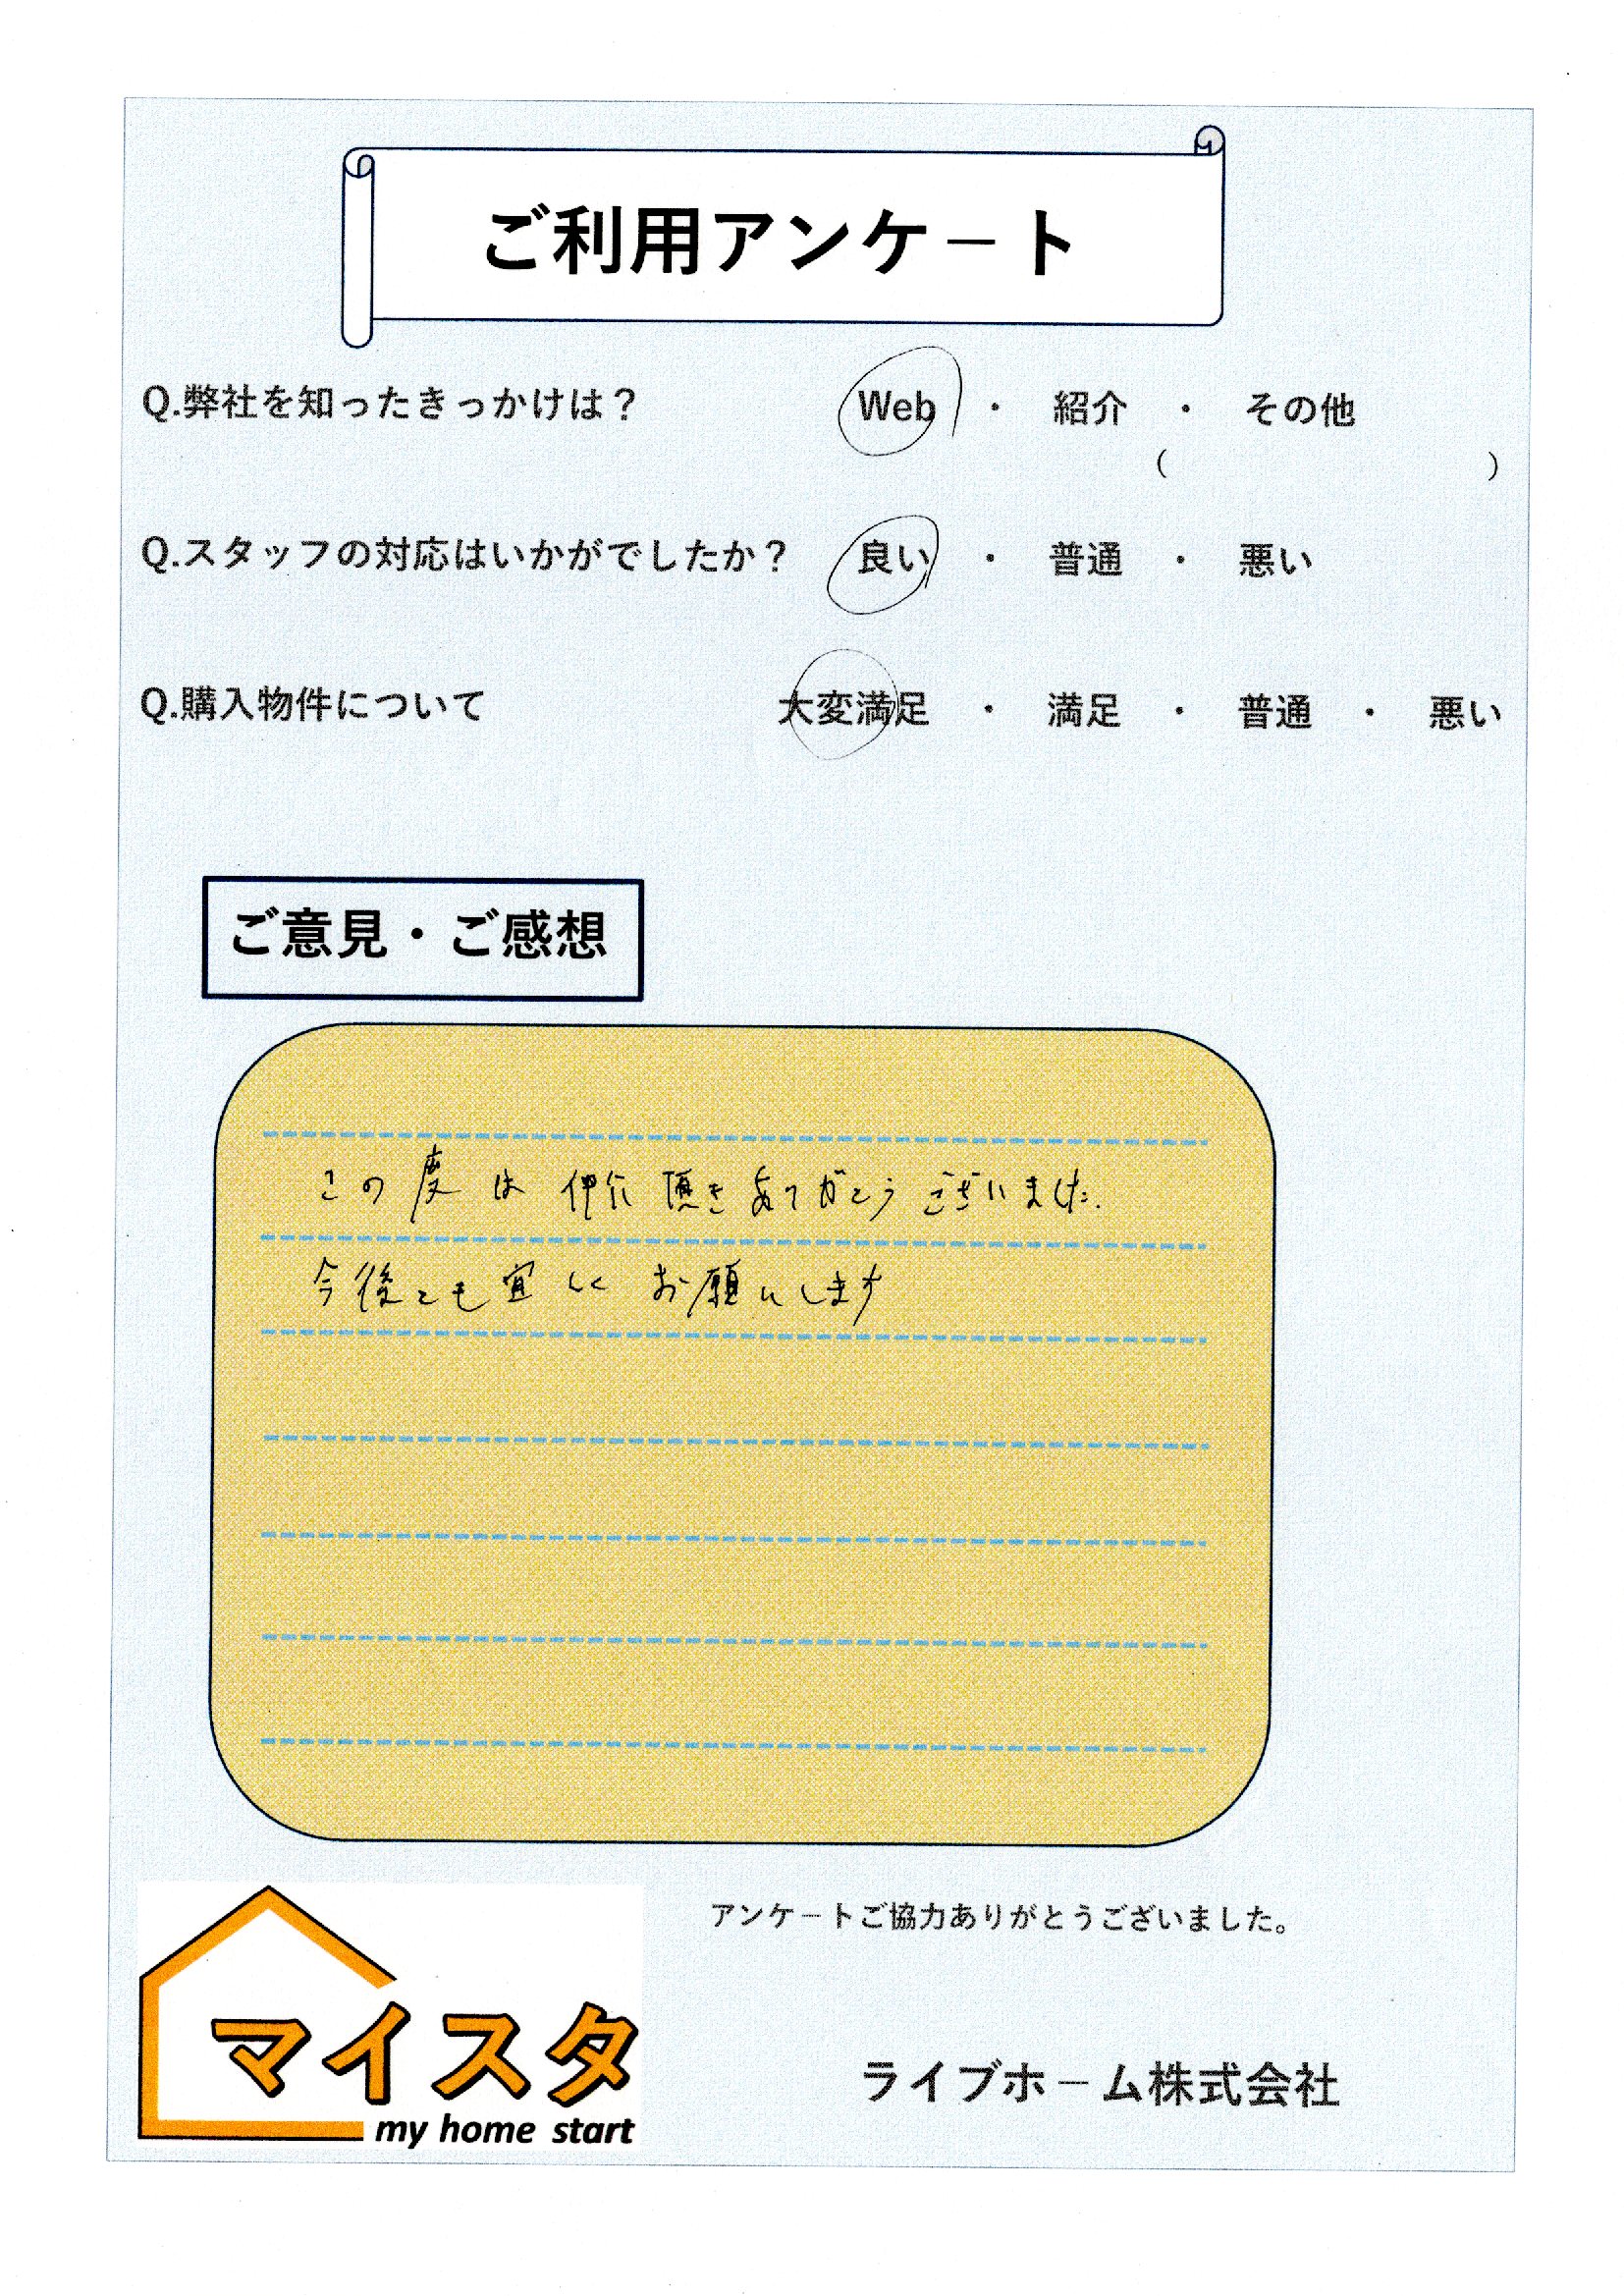 ご利用アンケート
Q.弊社を知ったきっかけは？ Web ・ 紹介 ・ その他
( )
Q.スタッフの対応はいかがでしたか？ 良い ・ 普通 ・ 悪い
Q.購入物件について 大変満足 ・ 満足 ・ 普通 ・ 悪い
ご意見・ご感想
この度は仲介頂きありがとうございました.
今後とも宜しくお願いします
アンケートご協力ありがとうございました。
マイスタ
my home start
ライブホーム株式会社